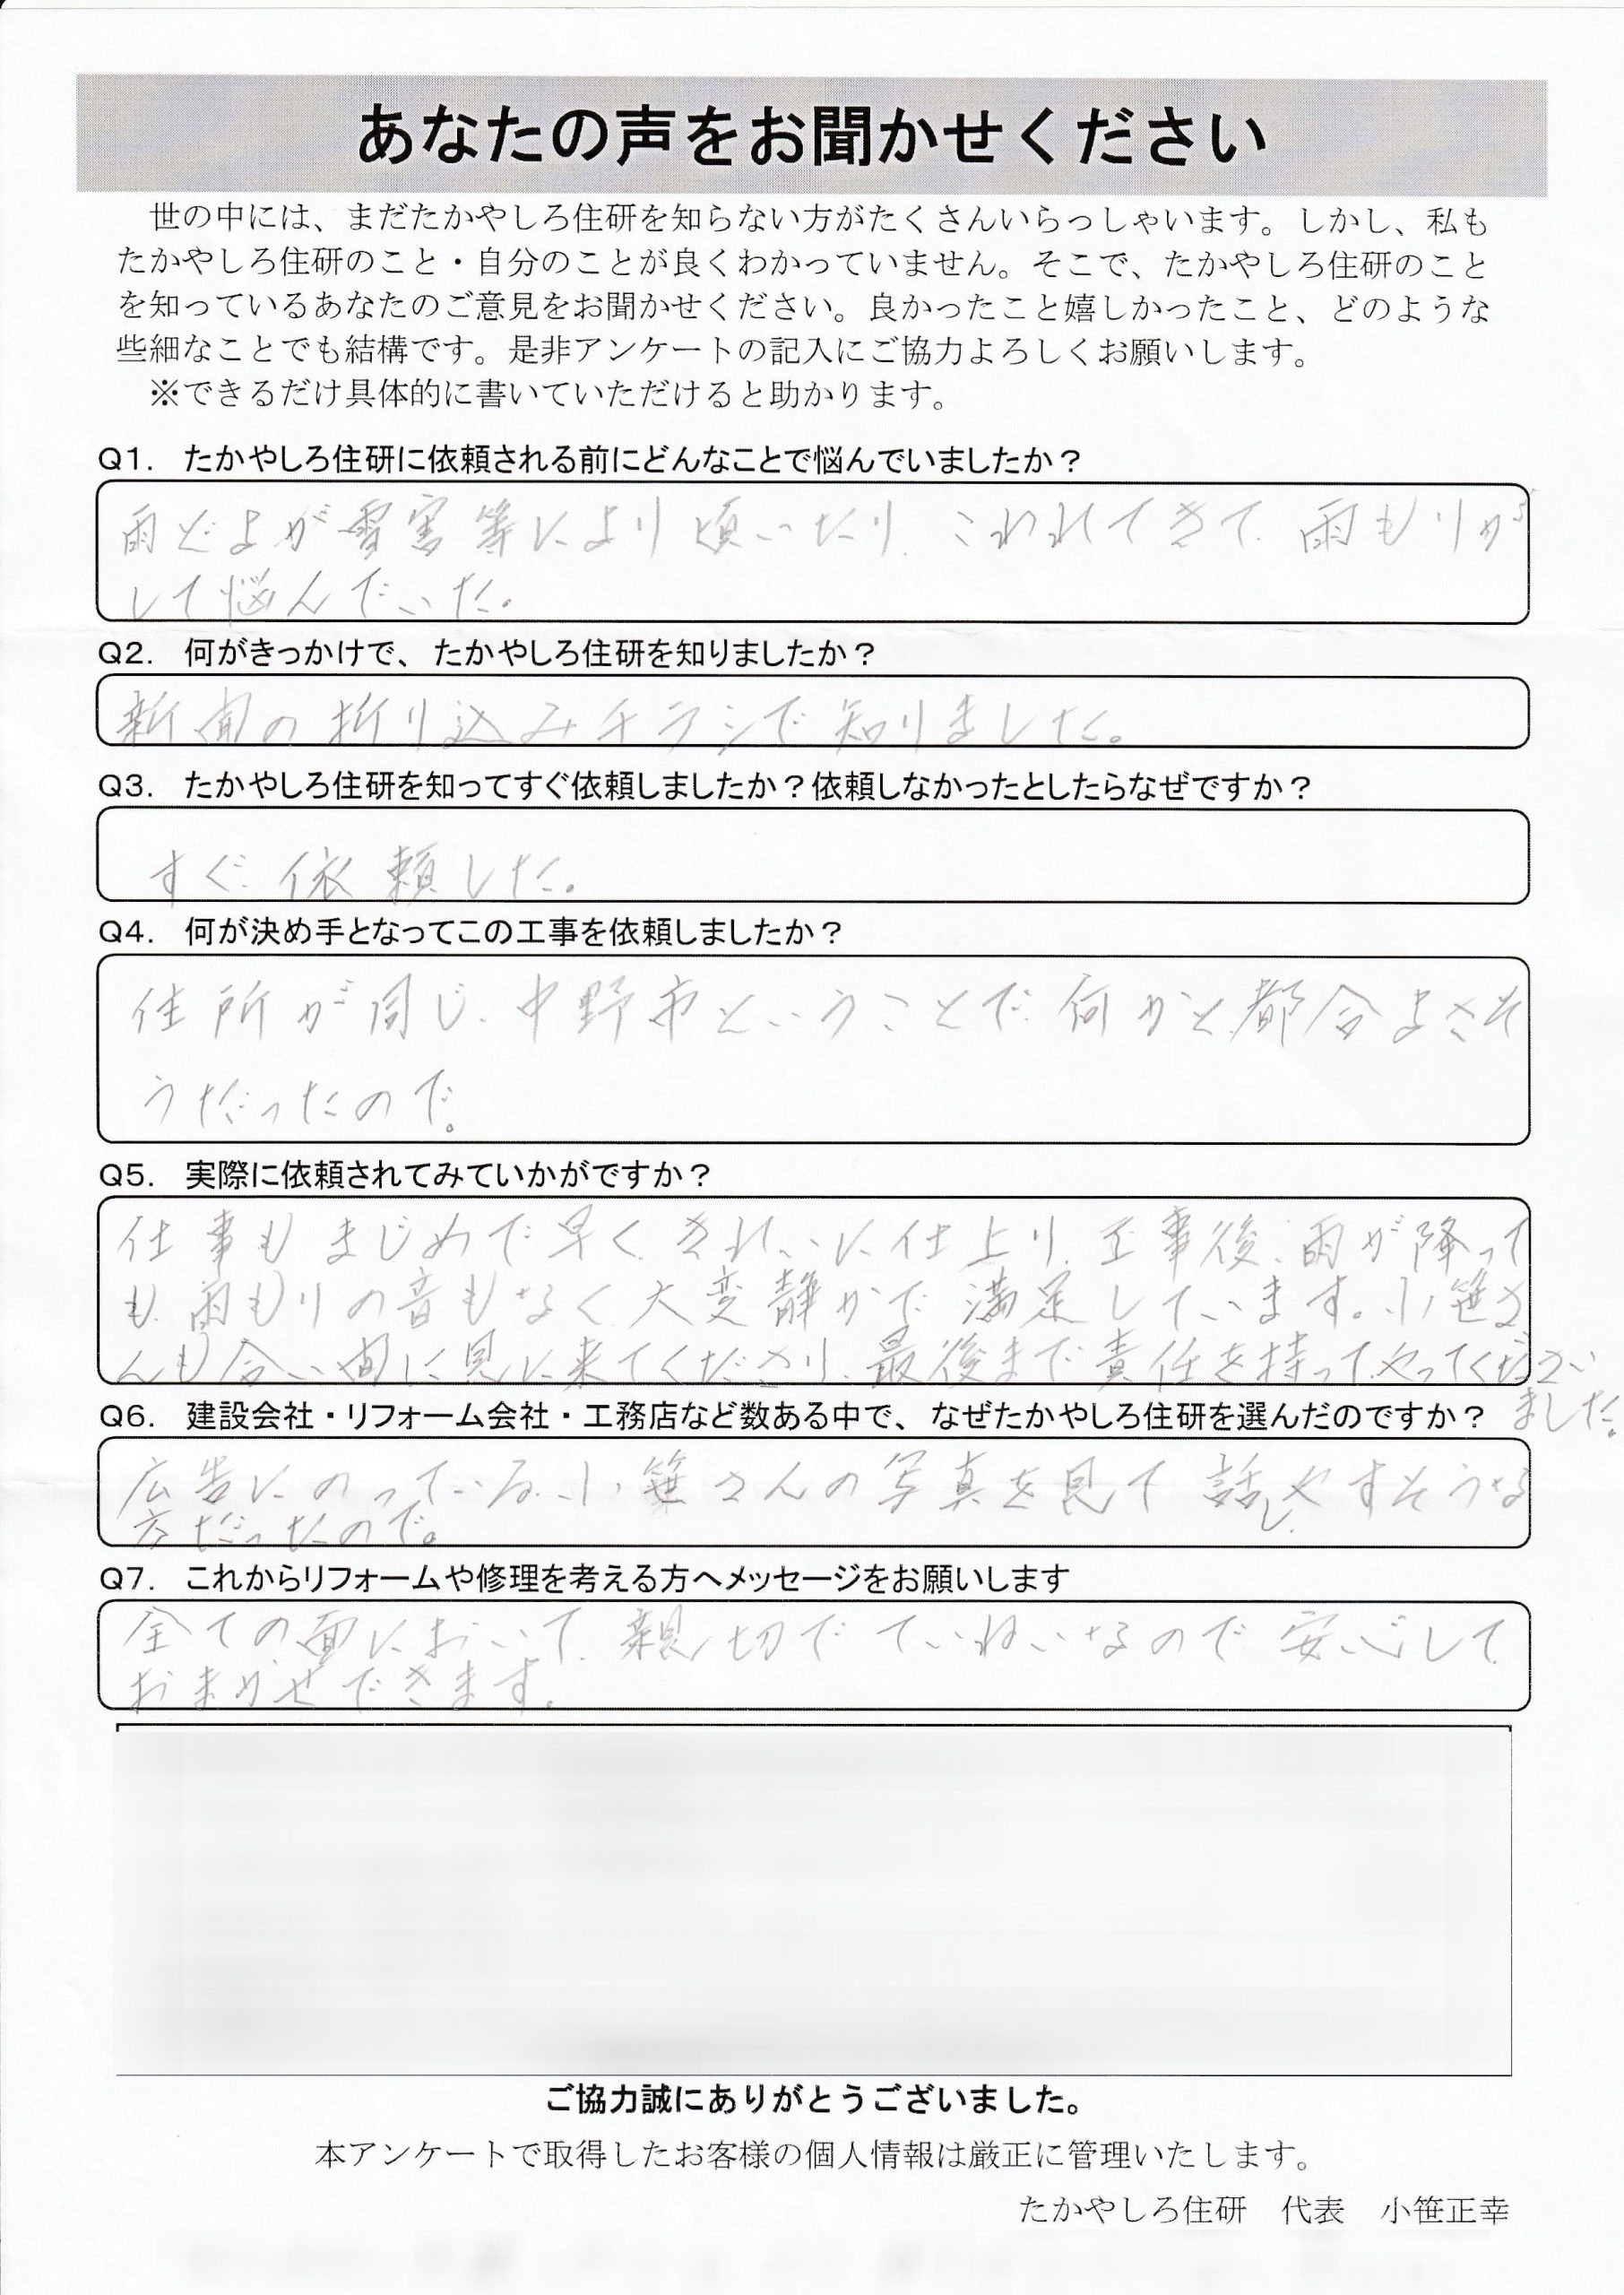 あなたの声をお聞かせください
世の中には、まだたかやしろ住研を知らない方がたくさんいらっしゃいます。しかし、私も
たかやしろ住研のこと・自分のことが良くわかっていません。そこで、たかやしろ住研のこと
を知っているあなたのご意見をお聞かせください。良かったこと嬉しかったこと、どのような
些細なことでも結構です。是非アンケートの記入にご協力よろしくお願いします。
※できるだけ具体的に書いていただけると助かります。
Q1. たかやしろ住研に依頼される前にどんなことで悩んでいましたか？
雨どよが雪害等により傾いたり、これれてきて、雨もりが
して悩んでいた。
Q2. 何がきっかけで、たかやしろ住研を知りましたか？
新聞の折り込みチラシで知りました。
Q3. たかやしろ住研を知ってすぐ依頼しましたか？依頼しなかったとしたらなぜですか？
すぐ依頼した。
Q4. 何が決め手となってこの工事を依頼しましたか？
住所が同じ、中野市ということで、何かと都合よさそ
うだったので。
Q5. 実際に依頼されてみていかがですか？
仕事もまじめで早く、きれいに仕上り、工事後、雨が降って
も、雨もりの音もなく、大変静かで満足しています。小笹さ
んも合い間に見に来てくださり、最後まで責任を持ってやってください
ました。
Q6. 建設会社・リフォーム会社・工務店など数ある中で、なぜたかやしろ住研を選んだのですか？
広告にのっている、小笹さんの写真を見て話しやすそうな
方だったので。
Q7. これからリフォームや修理を考える方へメッセージをお願いします
全ての面において、親切でていねいなので安心して
おまかせできます。
ご協力誠にありがとうございました。
本アンケートで取得したお客様の個人情報は厳正に管理いたします。
たかやしろ住研　代表　小笹正幸